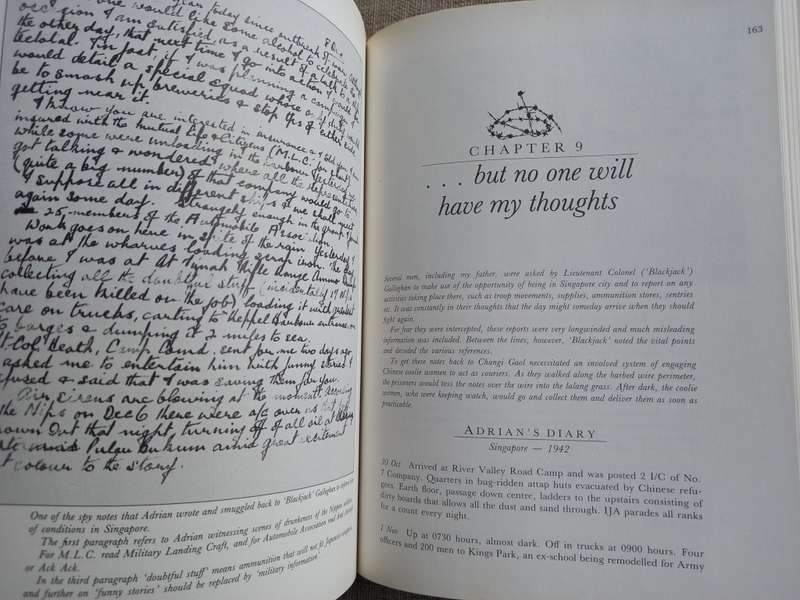 one would like some alcohol to celebrate the
occasion I am satisfied, as a result of a talk
the other day, that next time I go into action I
teetotal. In fact, if I was planning a campaign I
would detail a special squad whose only duty would
be to smash up breweries & stop tps of either side
getting near it.
I know you are interested in insurance
insured with the Mutual Life & Citizens (M.L.C. for short)
while some were unloading in the harbour yesterday
got talking & wondered where all the representatives
(quite a big number) of that company would go to
I suppose all in different ships as we shall meet
again some day. Strangely enough in the group I found
25 members of the Automobile Association.
Work goes on here in spite of the rain yesterday I
was at the wharves loading scrap iron. The day
before I was at Bt Timah Rifle Range Ammo Dump
collecting all the doubtful stuff (incidentally 19
have been killed on the job) loading it with
care on trucks, carting to Keppel Harbour entrance, on
to barges & dumping it 2 miles to sea.
Lt Col. Death, Camp Comd. sent for me two days ago
asked me to entertain him with funny stories I
refused & said that I was saving them for you.
Air Sirens are blowing at the moment. According
the Nips on Dec 6 there were a/c over us
down Out that night, turning off of all oil at
Pulau Bukum amid great excitement
colour to the story.
One of the spy notes that Adrian wrote and smuggled back to 'Blackjack' Gallaghan
of conditions in Singapore.
The first paragraph refers to Adrian witnessing scenes of drunkeness of the Nippon
For M.L.C. read Military Landing Craft, and for Automobile Association read Anti Aircraft
or Ack Ack.
In the third paragraph 'doubtful stuff' means ammunition that will not fit Japanese
and further on 'funny stories' should be replaced by 'military information'
163
CHAPTER 9
. . . but no one will
have my thoughts
Several men, including my father, were asked by Lieutenant Colonel ('Blackjack')
Gallaghan to make use of the opportunity of being in Singapore city and to report on any
activities taking place there, such as troop movements, supplies, ammunition stores, sentries
etc. It was constantly in their thoughts that the day might someday arrive when they should
fight again.
For fear they were intercepted, these reports were very longwinded and much misleading
information was included. Between the lines, however, 'Blackjack' noted the vital points
and decoded the various references.
To get these notes back to Changi Gaol necessitated an involved system of engaging
Chinese coolie women to act as couriers. As they walked along the barbed wire perimeter,
the prisoners would toss the notes over the wire into the lalang grass. After dark, the coolie
women, who were keeping watch, would go and collect them and deliver them as soon as
practicable.
ADRIAN'S DIARY
Singapore — 1942
30 Oct Arrived at River Valley Road Camp and was posted 2 I/C of No.
7 Company. Quarters in bug-ridden attap huts evacuated by Chinese refu-
gees. Earth floor, passage down centre, ladders to the upstairs consisting of
dirty boards that allows all the dust and sand through. IJA parades all ranks
for a count every night.
1 Nov Up at 0730 hours, almost dark. Off in trucks at 0900 hours. Four
officers and 200 men to Kings Park, an ex-school being remodelled for Army